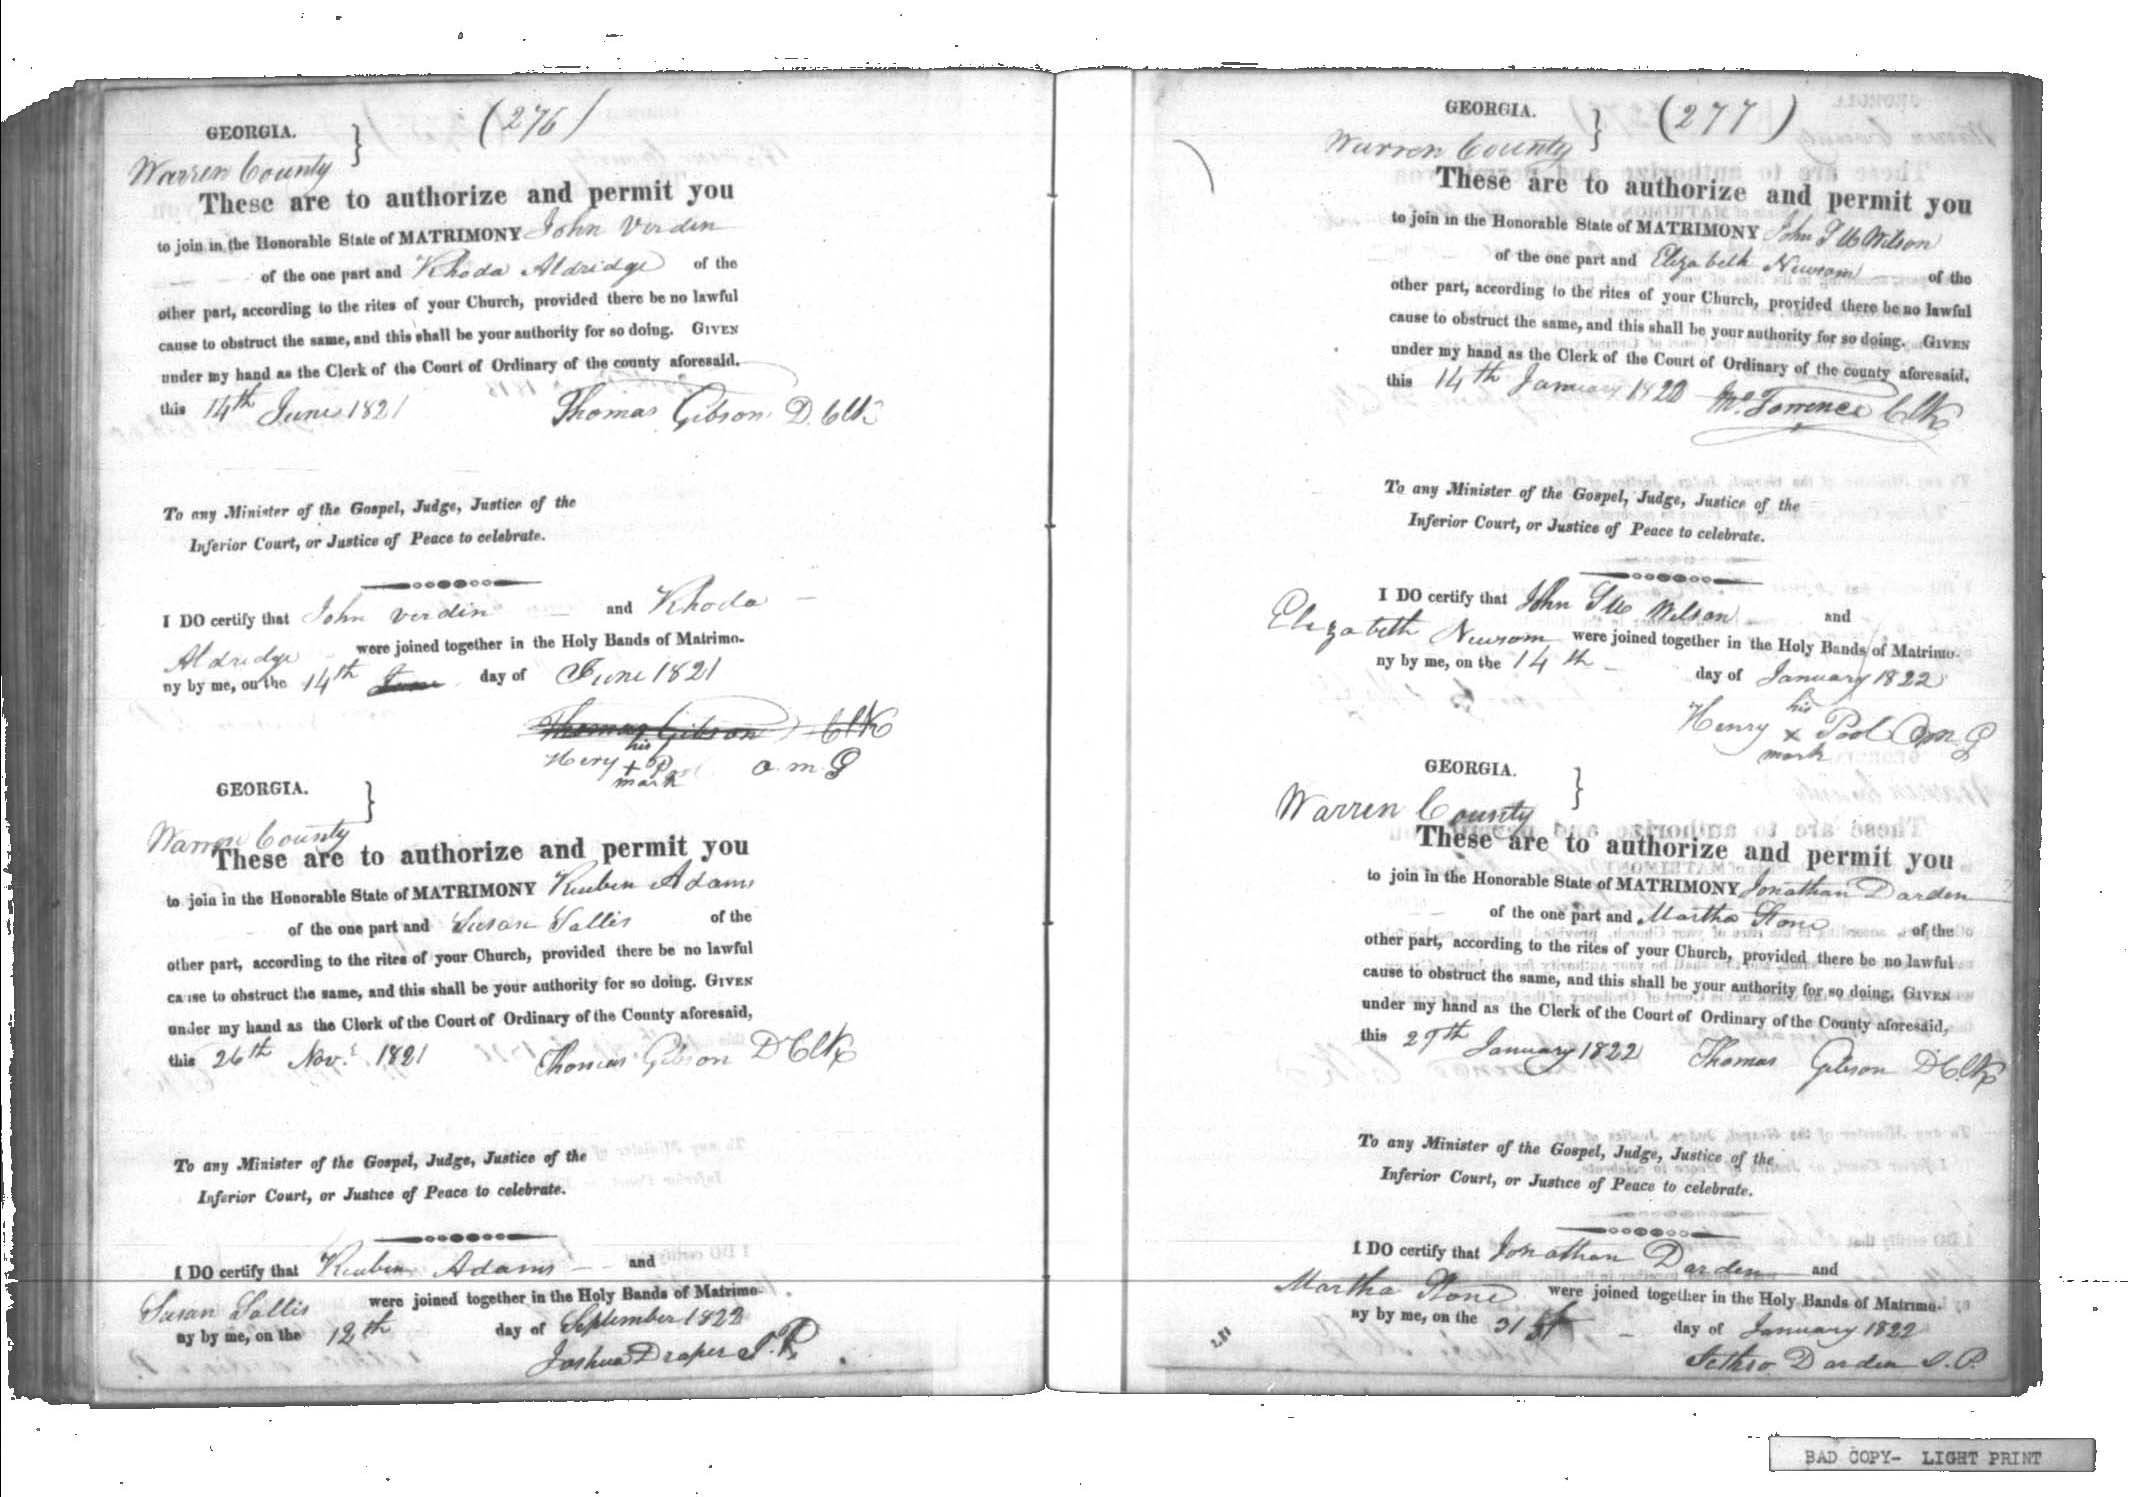 (276)
GEORGIA.
Warren County
These are to authorize and permit you
to join in the Honorable State of MATRIMONY John Verdin
of the one part and Rhoda Aldridge of the
other part, according to the rites of your Church, provided there be no lawful
cause to obstruct the same, and this shall be your authority for so doing. GIVEN
under my hand as the Clerk of the Court of Ordinary of the county aforesaid.
this 14th June 1821 Thomas Gibson D. Clk
To any Minister of the Gospel, Judge, Justice of the
Inferior Court, or Justice of Peace to celebrate.
I DO certify that John Verdin and Rhoda
Aldridge were joined together in the Holy Bands of Matrimo-
ny by me, on the 14th June day of June 1821
Thomas Gibson Clk
his
Hery + Pool O.M.G
mark
GEORGIA.
Warren County
These are to authorize and permit you
to join in the Honorable State of MATRIMONY Reuben Adams
of the one part and Susan Sallis of the
other part, according to the rites of your Church, provided there be no lawful
cause to obstruct the same, and this shall be your authority for so doing. GIVEN
under my hand as the Clerk of the Court of Ordinary of the County aforesaid,
this 26th Nov. 1821 Thomas Gibson D Clk
To any Minister of the Gospel, Judge, Justice of the
Inferior Court, or Justice of Peace to celebrate.
I DO certify that Reuben Adams and
Susan Sallis were joined together in the Holy Bands of Matrimo-
ny by me, on the 12th day of September 1822
Joshua Draper J.P.
(277)
GEORGIA.
Warren County
These are to authorize and permit you
to join in the Honorable State of MATRIMONY John Wilson
of the one part and Elizabeth Newsom of the
other part, according to the rites of your Church, provided there be no lawful
cause to obstruct the same, and this shall be your authority for so doing. GIVEN
under my hand as the Clerk of the Court of Ordinary of the county aforesaid.
this 14th January 1822 Torrence Clk
To any Minister of the Gospel, Judge, Justice of the
Inferior Court, or Justice of Peace to celebrate.
I DO certify that John Wilson and
Elizabeth Newsom were joined together in the Holy Bands of Matrimo-
ny by me, on the 14th day of January 1822
his
Henry x Pool O.M.G
mark
GEORGIA.
Warren County
These are to authorize and permit you
to join in the Honorable State of MATRIMONY Jonathan Darden
of the one part and Martha Stone of the
other part, according to the rites of your Church, provided there be no lawful
cause to obstruct the same, and this shall be your authority for so doing. GIVEN
under my hand as the Clerk of the Court of Ordinary of the County aforesaid,
this 29th January 1822 Thomas Gibson D Clk
To any Minister of the Gospel, Judge, Justice of the
Inferior Court, or Justice of Peace to celebrate.
I DO certify that Jonathan Darden and
Martha Stone were joined together in the Holy Bands of Matrimo-
ny by me, on the 31st day of January 1822
Jethro Darden J.P.
BAD COPY- LIGHT PRINT